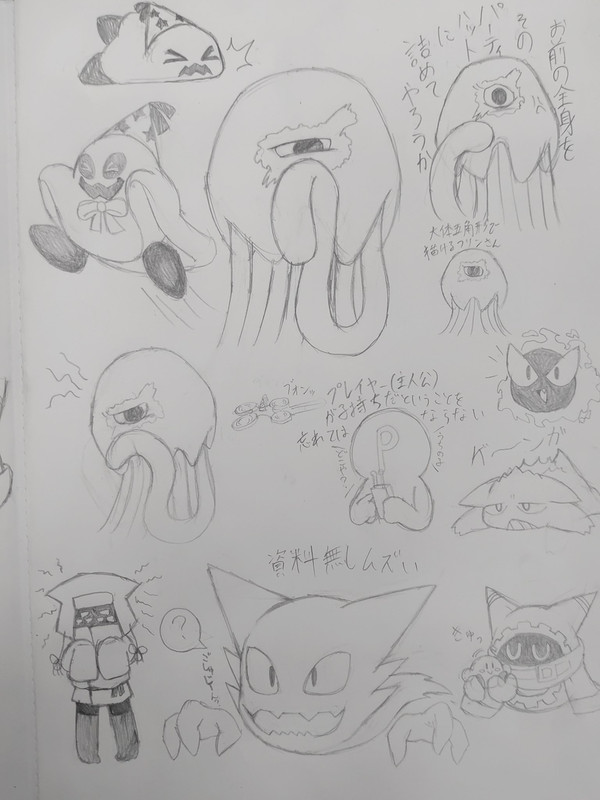 お前の全身を
その
パーティ
ハット
に
詰めて
やろうか
大体五角形で
描けるプリンさん
ブオンッ
プレイヤー(主人公)
が子持ちだということを
忘れては
ならない
P
ゲーンガ
資料無しムズい
?
ぎゅっ